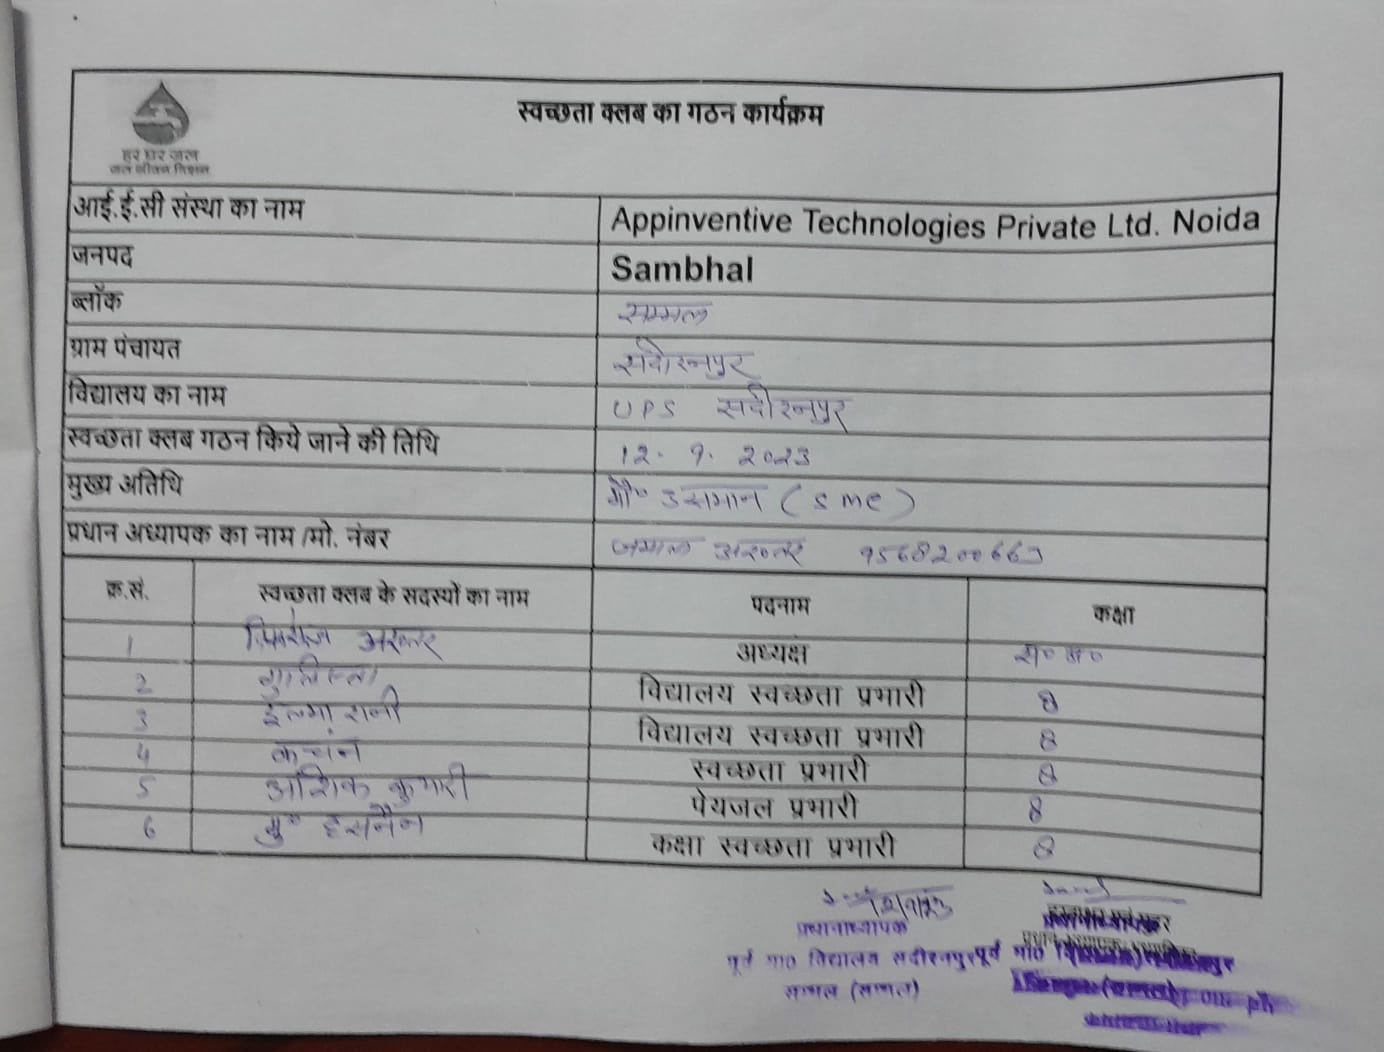 स्वच्छता क्लब का गठन कार्यक्रम
हर घर जल
जल जीवन मिशन
आई.ई.सी संस्था का नाम Appinventive Technologies Private Ltd. Noida
जनपद Sambhal
ब्लॉक सम्भल
ग्राम पंचायत सदीरनपुर
विद्यालय का नाम UPS सदीरनपुर
स्वच्छता क्लब गठन किये जाने की तिथि 12. 9. 2023
मुख्य अतिथि मौ० उसमान (SMC)
प्रधान अध्यापक का नाम /मो. नंबर जमाल अख्तर 9568200663
क्र.सं. स्वच्छता क्लब के सदस्यों का नाम पदनाम कक्षा
1 अख्तर अध्यक्ष स० अ०
2 गुलिस्ता विद्यालय स्वच्छता प्रभारी 8
3 इल्मा रानी विद्यालय स्वच्छता प्रभारी 8
4 कचंन स्वच्छता प्रभारी 8
5 अंशिक कुमारी पेयजल प्रभारी 8
6 मु० हसनैन कक्षा स्वच्छता प्रभारी 8
प्रधानाध्यापक
पूर्व मा० विद्यालय सदीरनपुर
सम्भल (सम्भल)
पूर्व मा०